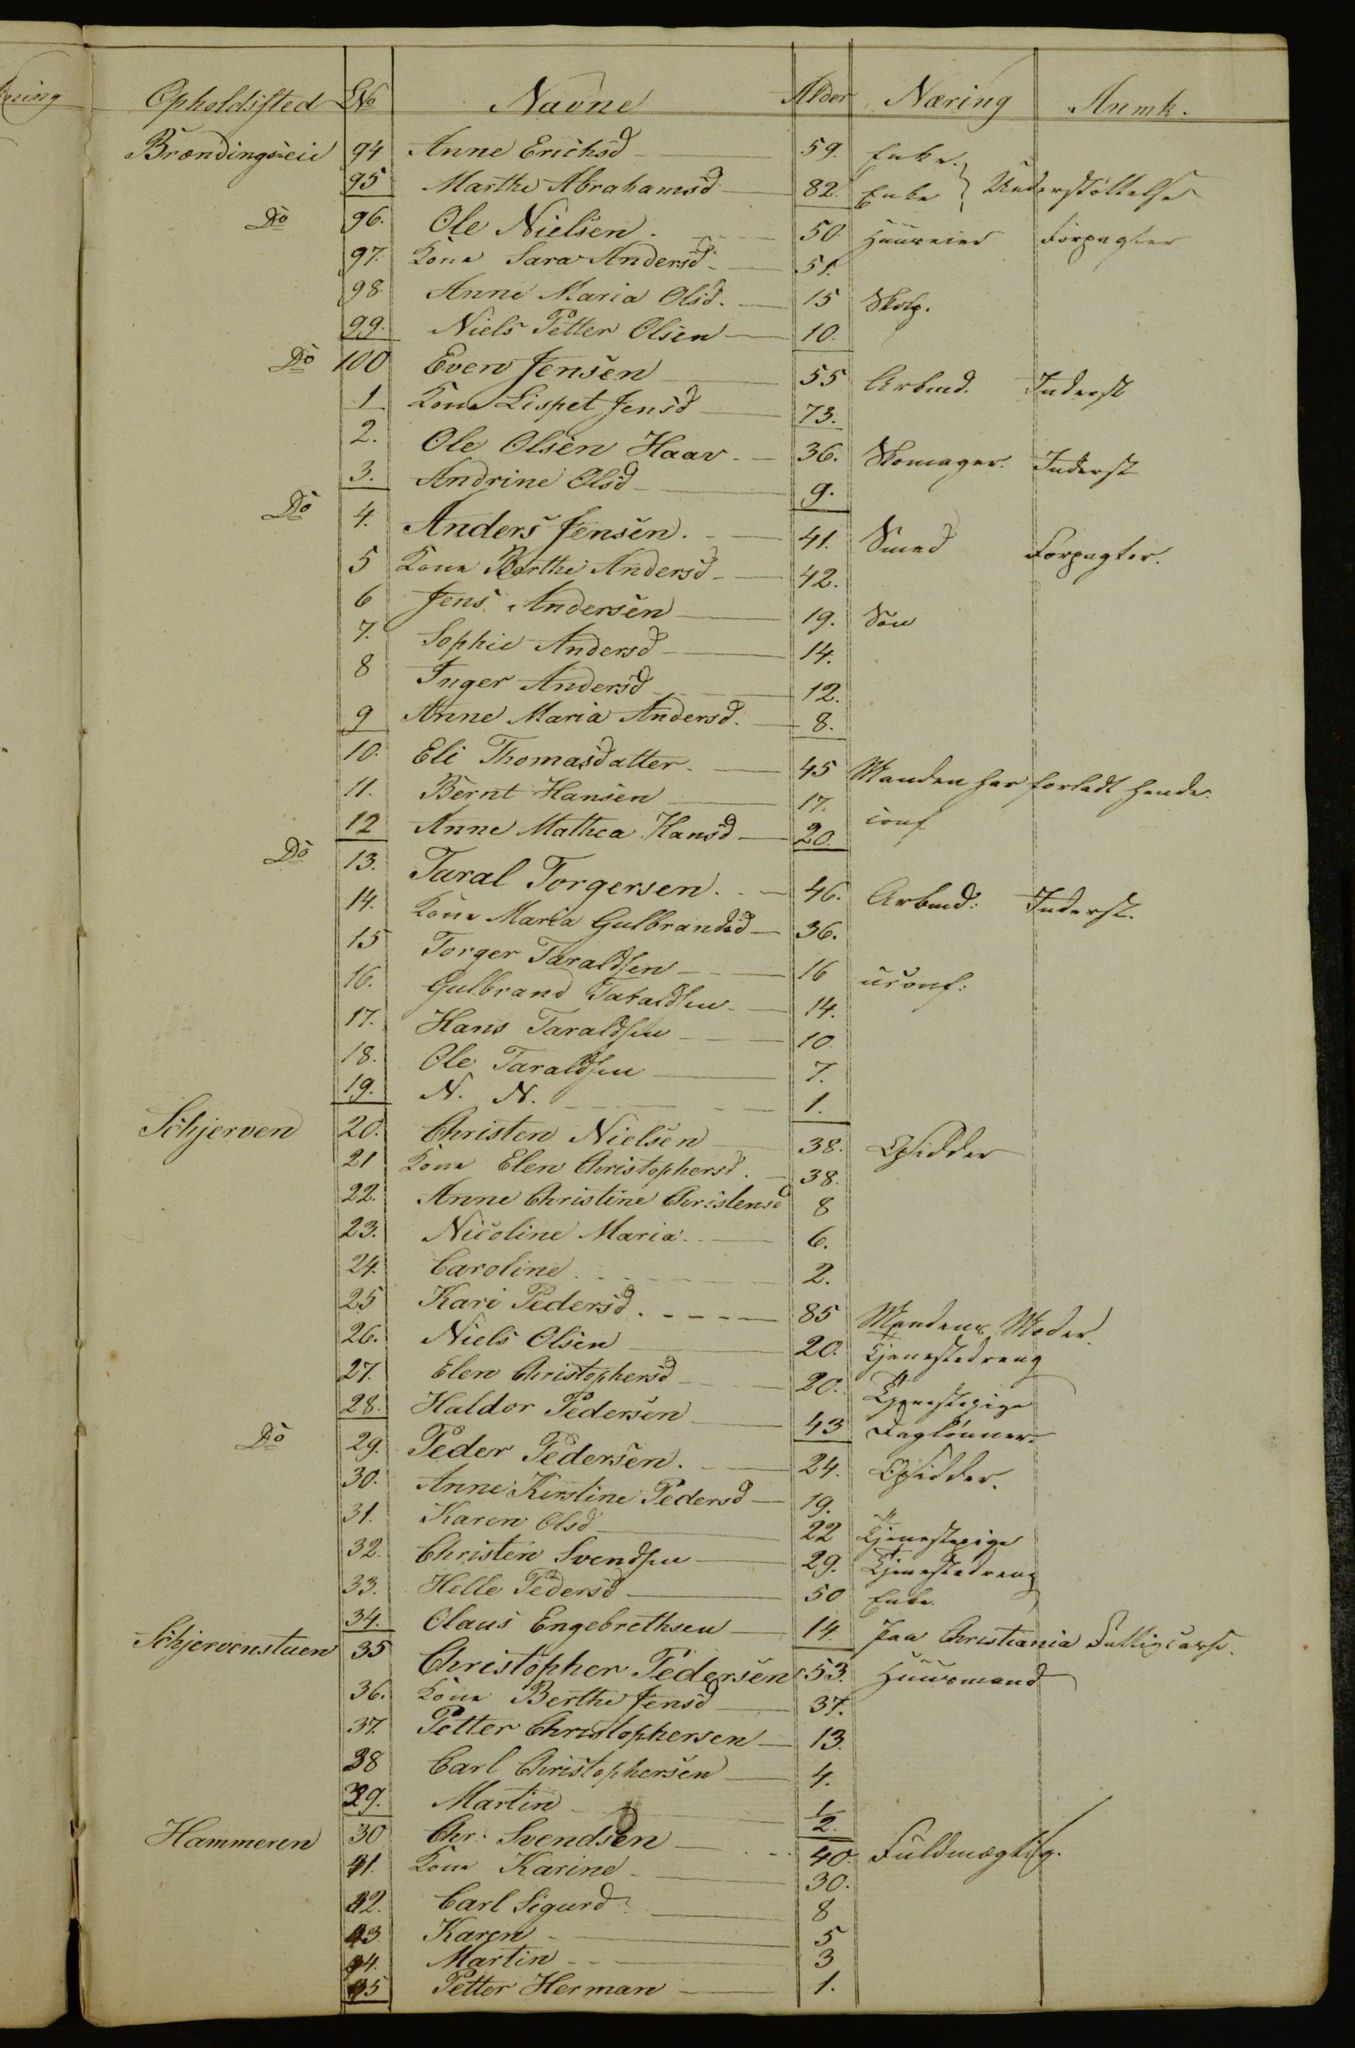 Opholdssted LNo Navne Alder Næring Anmk.
Brændingseie 94 Anne Erichsd 59. Enke.
95 Marthe Abrahamsd 82. Enke } Understøttelse
Do 96. Ole Nielsen. 50. Huuseier Forpagter
97. Kone Sara Andersd 51.
98. Anne Maria Olsd. 15
99. Niels Petter Olsen 10.
Do 100 Even Jensen 55 Arbmd. Inderst
1 Kone Lispet Jensd 73.
2. Ole Olsen Haav. 36. Skomager. Inderst
3. Andrine Olsd 9.
Do 4. Anders Jensen. 41. Smed Forpagter.
5 Kone Berthe Andersd 42.
6 Jens Andersen 19. Søn
7. Sophie Andersd 14.
8 Inger Andersd 12.
9 Anne Maria Andersd. 8.
10. Eli Thomasdatter. 45 Manden har forladt hende.
11. Bernt Hansen 17.
12 Anne Mathea Hansd 20. conf
Do 13. Taral Torgersen. 46. Arbmd: Inderst.
14. Kone Maria Gulbrandsd 36.
15 Torger Taraldsen 16 uconf:
16. Gulbrand Taraldsen 14.
17. Hans Taraldsen 10
18. Ole Taraldsen 7.
19. N. N. 1.
Schjerven 20. Christen Nielsen 38. Opsidder
21 Kone Elen Christophersd. 38.
22. Anne Christine Christensd 8
23. Nicoline Maria 6.
24. Caroline 2.
25 Kari Pedersd. 85 Mandens Moder.
26. Niels Olsen 20. Tjenestedreng
27. Elen Christophersd 20. Tjenestepige
28. Haldor Pedersen 43 DagLønner.
Do 29. Peder Pedersen. 24. Opsidder.
30. Anne Kirstine Pedersd 19.
31. Karen Olsd 22 Tjenestepige
32. Christen Svendsen 29. Tjenestedreng
33. Helle Pedersd 50 Enke.
34. Olaus Engebrethsen 14. paa Christiania Fattigcasse.
Schjervenstuen 35 Christopher Pedersen 53. Huusmand
36. Kone Berthe Jensd 37.
37. Petter Christophersen 13.
38 Carl Christophersen 4.
39. Martin 1/2.
Hammeren 30 Chr. Svendsen 40. Fuldmægtig.
41. Kone Karine 30.
42. Carl Sigurd 8
43 Karen 5
44. Martin 3
45 Petter Herman 1.